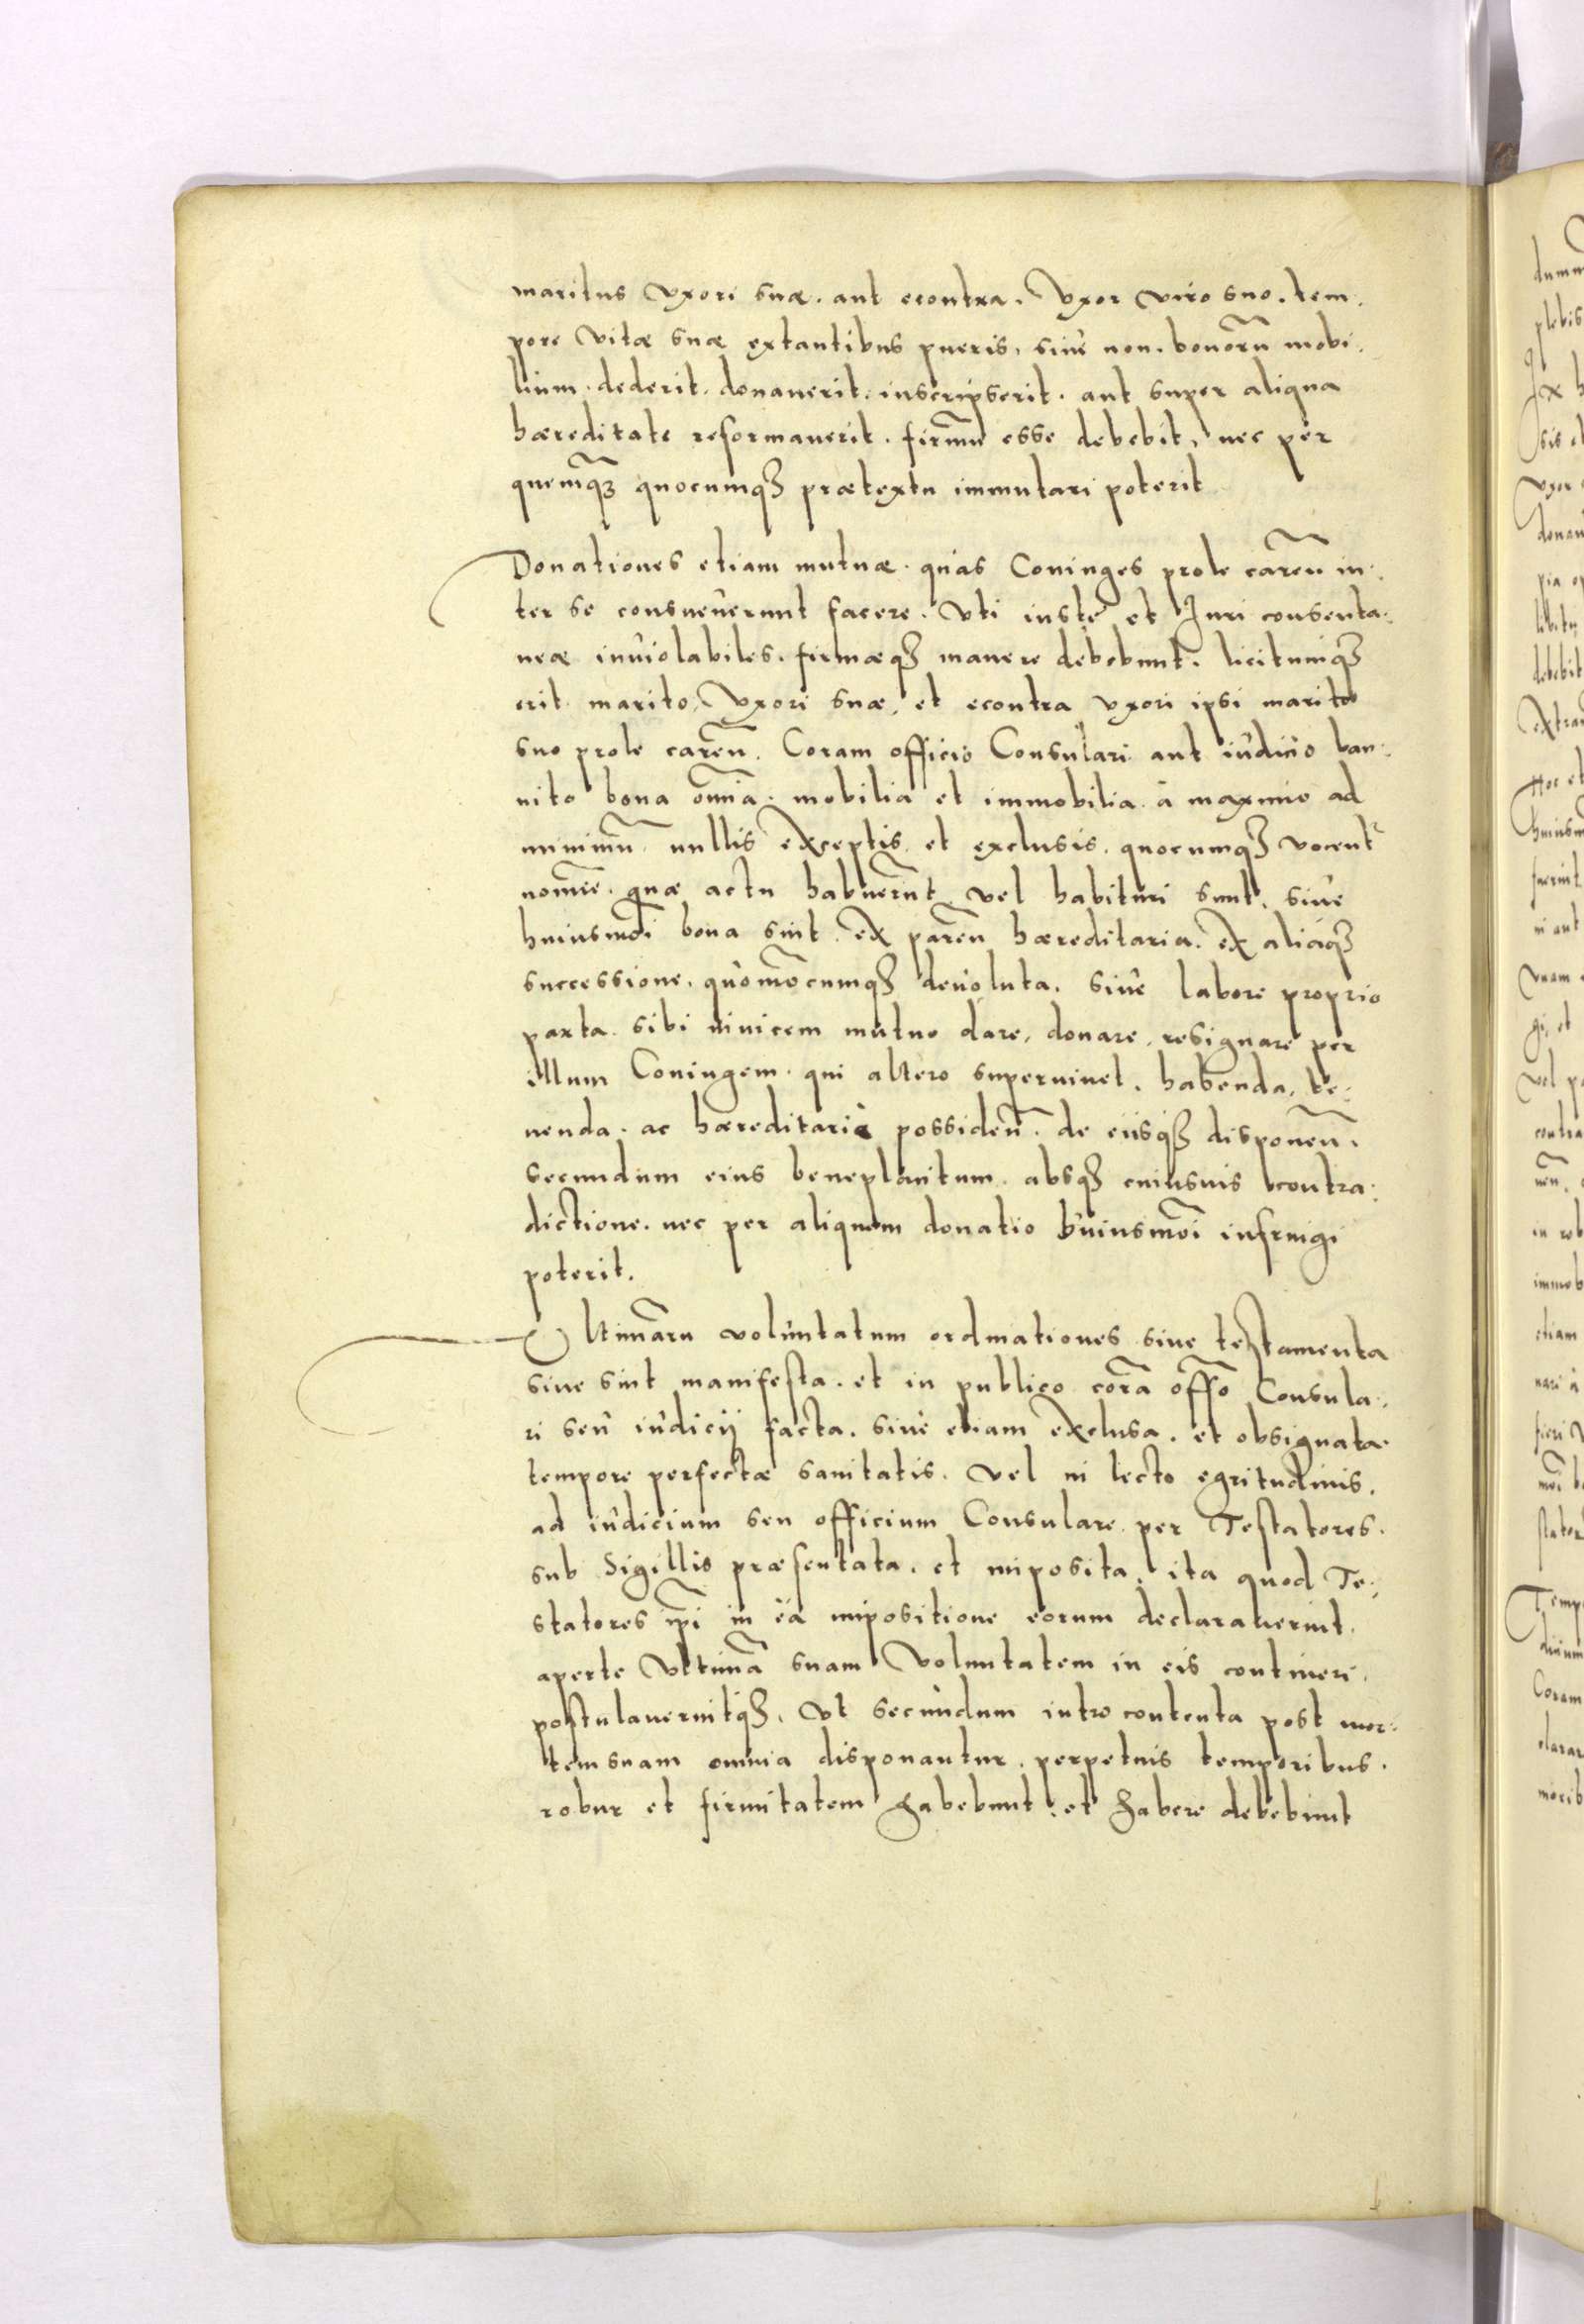 maritus Vxori suæ. aut econtra. Vxor viro suo. tem.
pore Vitæ suæ extantibus pueris, siue non. bonorũ mobi.
lium. dederit. donauerit. inscripserit. aut super aliqua
hæreditate reformauerit. firmũ esse debebit, nec per
quemq̃ʒ quocumqʒ prætextu immutari poterit
Donationes etiam mutuæ. quas Coniuges prole careñ in.
ter se consueuerunt facere. Vti iustę et Juri consenta.
neæ inuiolabiles. firmæqʒ manere debebunt. licitumqʒ
erit marito, Vxori suæ, et econtra vxori ipsi marito
suo prole careñ. Coram officio Consulari aut iudicio ban.
nito bona om̃ia. mobilia et immobilia à maximo ad
minimũ nullis exceptis et exclusis. quocumqʒ vocentʳ
nom̃ie. quæ actu habuerint vel habituri sunt. siue
huiusmõi bona sint. ex pareñ hæreditaria. ex aliaqʒ
successione. quomõcumqʒ deuoluta. siue labore proprio
parta. sibi inuicem mutuo dare, donare, resignare per
illum Coniugem. qui altero superuiuet. habenda, te.
nenda. ac hæreditariè possideñ. de eiisqʒ disponeñ.
secundum eius beneplacitum. absqʒ cuiusuis contra.
dictione. nec per aliquem donatio huiusmõi infringi
poterit.
Vltimarũ voluntatum ordinationes siue testamenta
siue sint manifesta. et in publico corã offõ Consula.
ri seu iudicij facta. siue etiam exclusa. et obsignata.
tempore perfectæ sanitatis. vel in lecto egritudinis.
ad iudicium seu officium Consulare per Testatores.
sub Sigillis præsentata. et imposita. ita quod Te.
statores ip̃i in ea impositione eorum declarauerint.
aperte Vltimã suam Voluntatem in eis contineri.
postulauerintqʒ. Vt secundum intro contenta post mor.
tem suam omnia disponantur. perpetuis temporibus.
robur et firmitatem habebunt et habere debebunt